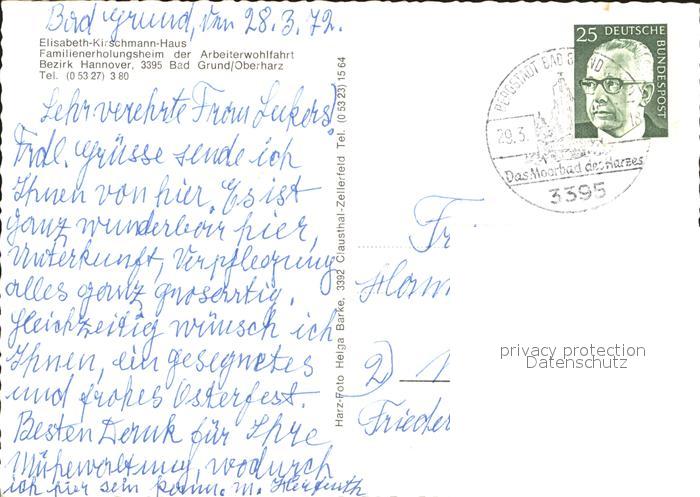 Bad Grund, den 28.3.72.
Elisabeth-Kirschmann-Haus
Familienerholungsheim der Arbeiterwohlfahrt
Bezirk Hannover, 3395 Bad Grund/Oberharz
Tel. (0 53 27) 3 80
Sehr verehrte Frau Lukers!
Frdl. Grüsse sende ich
Ihnen von hier. Es ist
ganz wunderbar hier,
Unterkunft, Verpflegung
alles ganz grosartig.
Gleichzeitig wünsch ich
Ihnen, ein gesegnetes
und frohes Osterfest.
Besten Dank für Ihre
Mühewaltung, wodurch
ich hier sein kann. M.
Harz-Foto Helga Barke, 3392 Clausthal-Zellerfeld Tel. (0 53 23) 15 64
25 DEUTSCHE
BUNDESPOST
BERGSTADT BAD GRUND
29.3.
18
Das Moorbad des Harzes
3395
Fr
Hann
2)
Frieder
privacy protection
Datenschutz